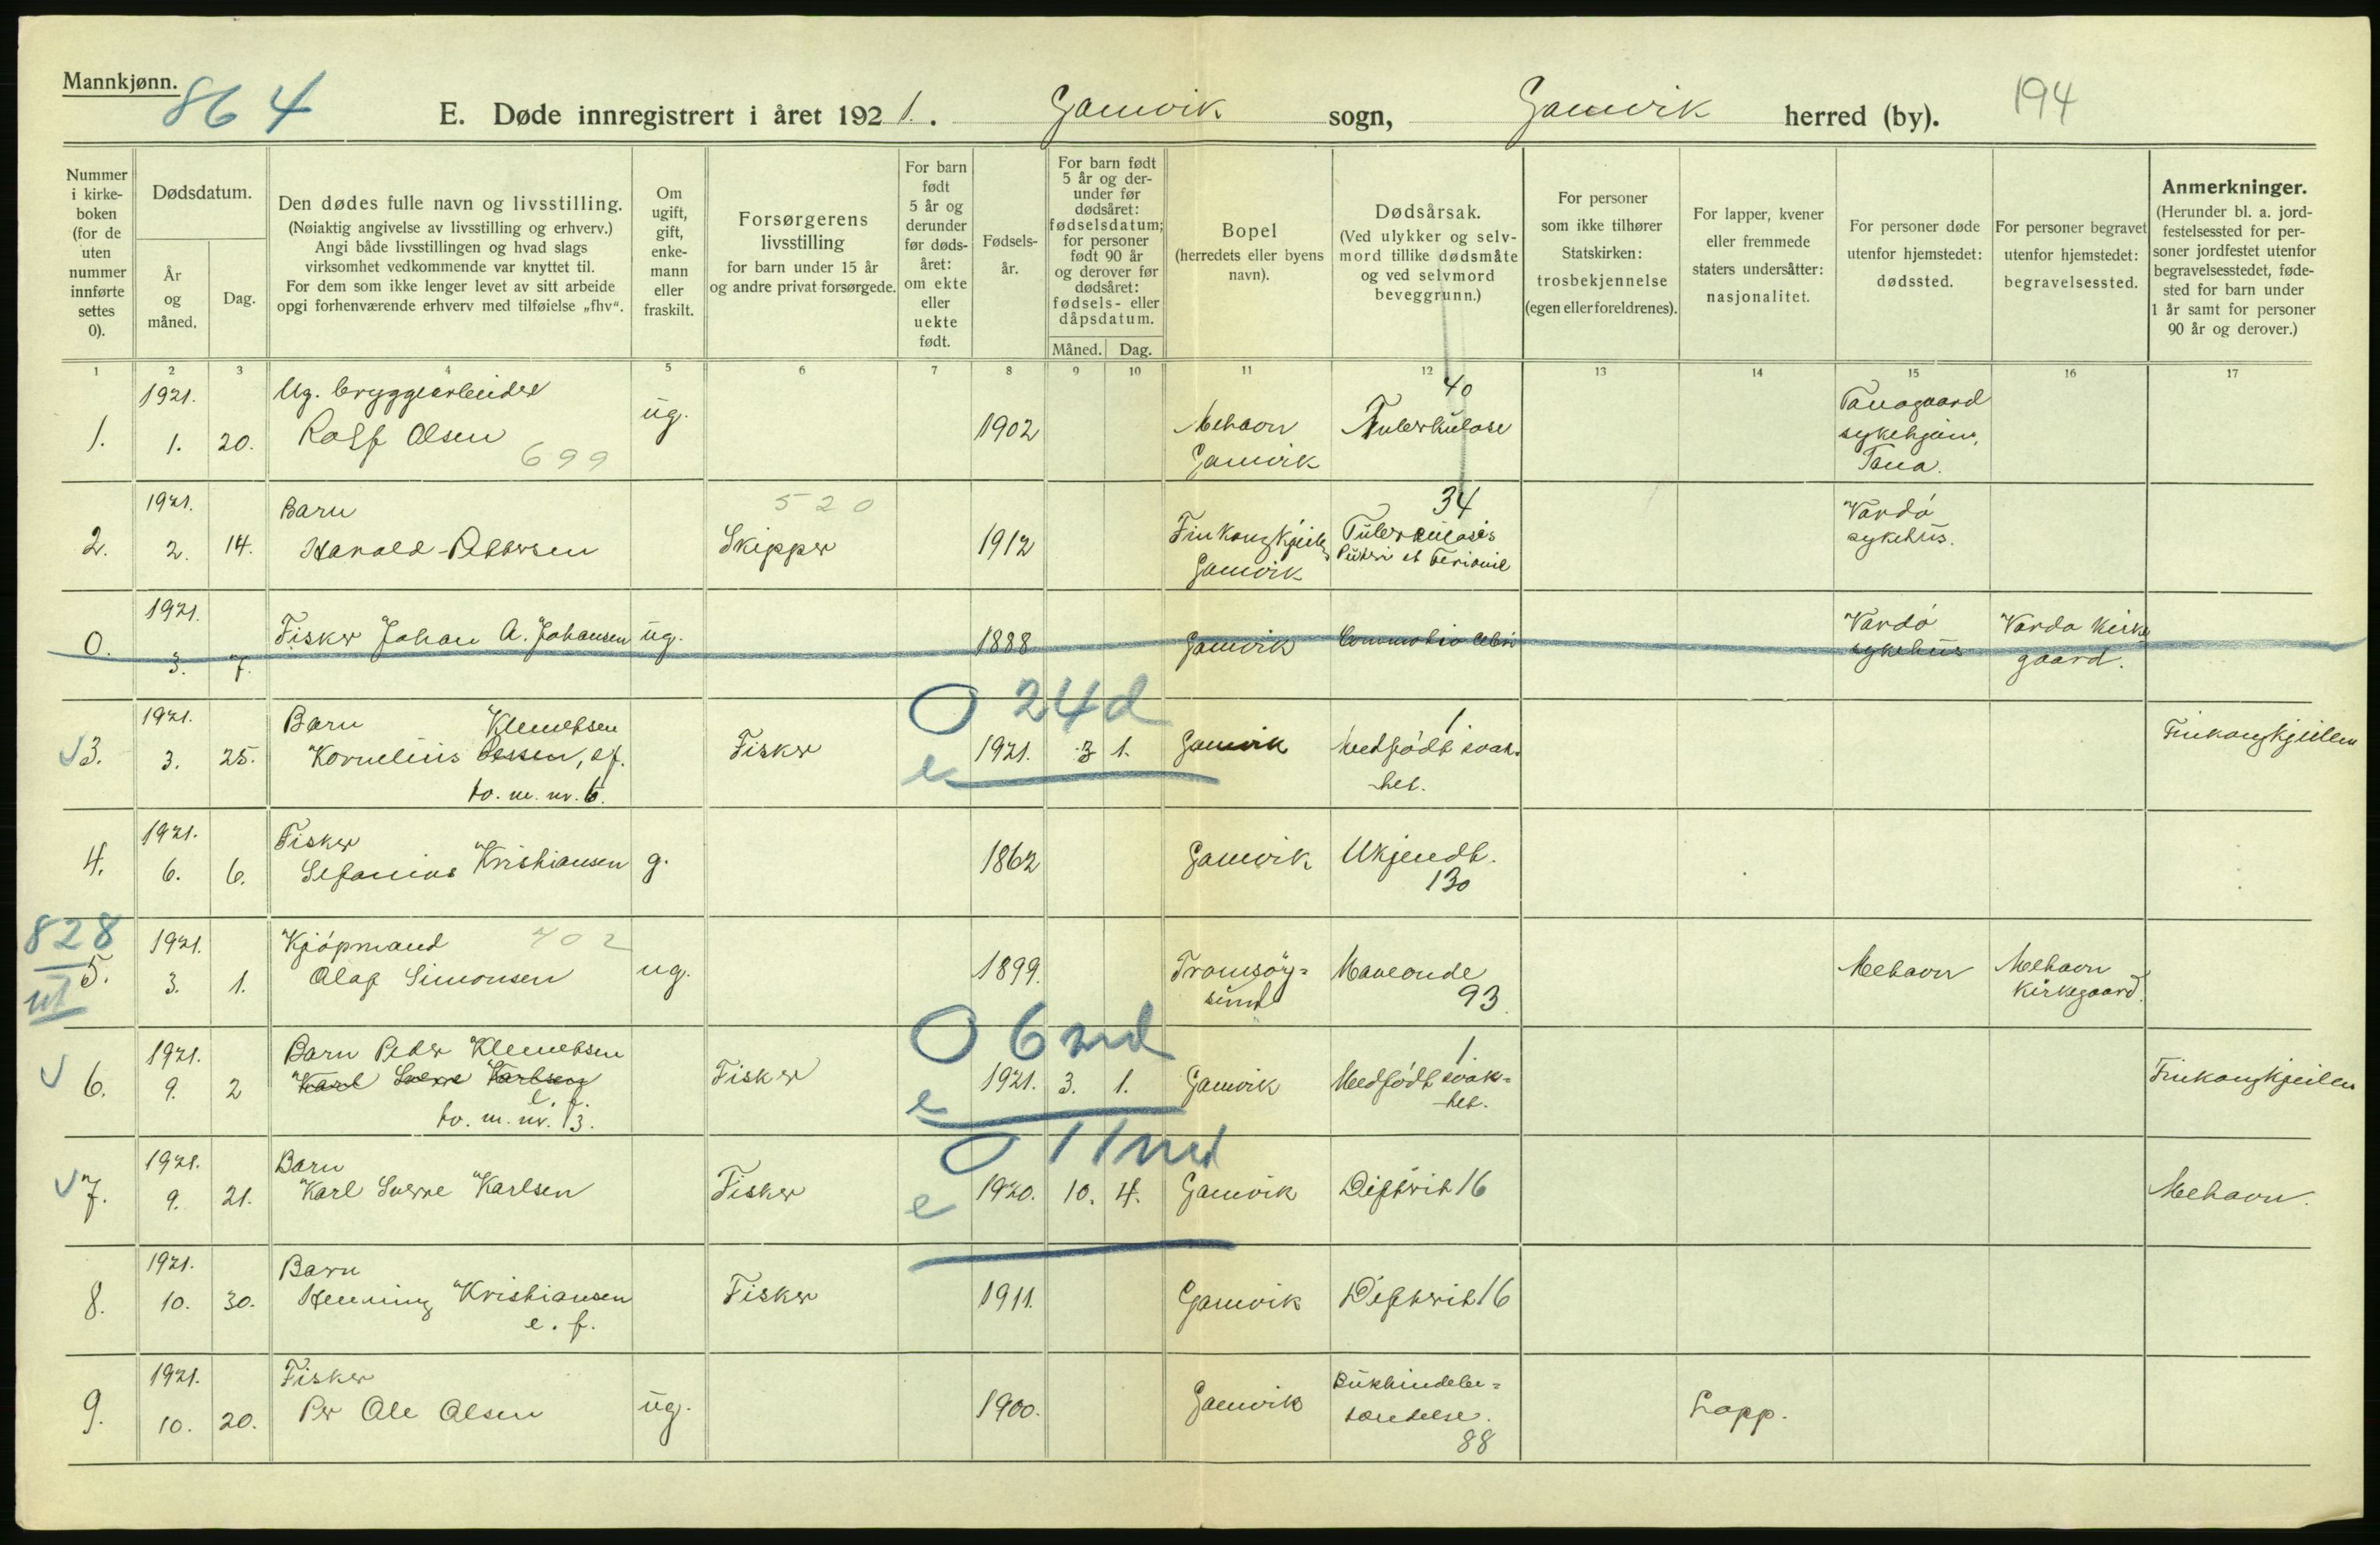 Mannkjønn.
864
E. Døde innregistrert i året 1921. Gamvik sogn, Gamvik herred (by). 194
Nummer i kirke-boken (for de uten nummer innførte settes 0).
Dødsdatum.
År og måned.
Dag.
Den dødes fulle navn og livsstilling.
(Nøiaktig angivelse av livsstilling og erhverv.)
Angi både livsstillingen og hvad slags
virksomhet vedkommende var knyttet til.
For dem som ikke lenger levet av sitt arbeide
opgi forhenværende erhverv med tilføielse „fhv“.
Om ugift, gift, enke-mann eller fraskilt.
Forsørgerens livsstilling
for barn under 15 år
og andre privat forsørgede.
For barn født 5 år og derunder før døds-året: om ekte eller uekte født.
Fødsels-år.
For barn født 5 år og der-under før dødsåret: fødselsdatum; for personer født 90 år og derover før dødsåret: fødsels- eller dåpsdatum.
Måned. Dag.
Bopel
(herredets eller byens navn).
Dødsårsak.
(Ved ulykker og selv-mord tillike dødsmåte og ved selvmord beveggrunn.)
For personer som ikke tilhører Statskirken: trosbekjennelse (egen eller foreldrenes).
For lapper, kvener eller fremmede staters undersåtter: nasjonalitet.
For personer døde utenfor hjemstedet: dødssted.
For personer begravet utenfor hjemstedet: begravelsessted.
Anmerkninger.
(Herunder bl. a. jord-festelsessted for per-soner jordfestet utenfor begravelsesstedet, føde-sted for barn under 1 år samt for personer 90 år og derover.)
1 2 3 4 5 6 7 8 9 10 11 12 13 14 15 16 17
1. 1921. 1. 20. Ug. bryggearbeider Rolf Olsen 699 ug. 1902 Mehavn Gamvik 40 Tuberkulose Tanagaard sykehjem, Tana.
2. 1921. 2. 14. Barn Harald Pettersen 520 Skipper 1912 Finkongkjeilen Gamvik 34 Tuberculosis Vardö sykehus.
0. 1921. 3. 7. Fisker Johan A. Johansen ug. 1888 Gamvik Commotio cebri Vardö sykehus Vardø Kirke gaard.
3. 1921. 3. 25. Barn Klemetsen Kornelius Jessen, ef. to. m. nr. 6. Fisker O 24d e 1921. 3 1. Gamvik 1 Medfödt svak-het. Finkongkjeilen
4. 1921. 6. 6. Fisker Sefanias Kristiansen g. 1862 Gamvik Ukjendt. 130
828 ut
5. 1921. 3. 1. Kjöpmand 702 Olaf Simonsen ug. 1899. Tromsöy=sund Mavonde 93 Mehavn Mehavn Kirkegaard.
6. 1921. 9. 2 Barn Peder Klemetsen Karl Sverre Karlsen e. f. to. m. nr. 3. Fisker O 6 md e 1921. 3. 1. Gamvik 1 Medfödt svak=het. Finkongkjeilen
7. 1921. 9. 21. Barn Karl Sverre Karlsen Fisker O 11 md e 1920. 10. 4. Gamvik Difterit 16 Mehavn.
8. 1921. 10. 30. Barn Henning Kristiansen e. f. Fisker 1911. Gamvik Difterit 16
9. 1921. 10. 20. Fisker Per Ole Olsen ug. 1900. Gamvik Bukhindebe=tændelse. 88 Lapp.